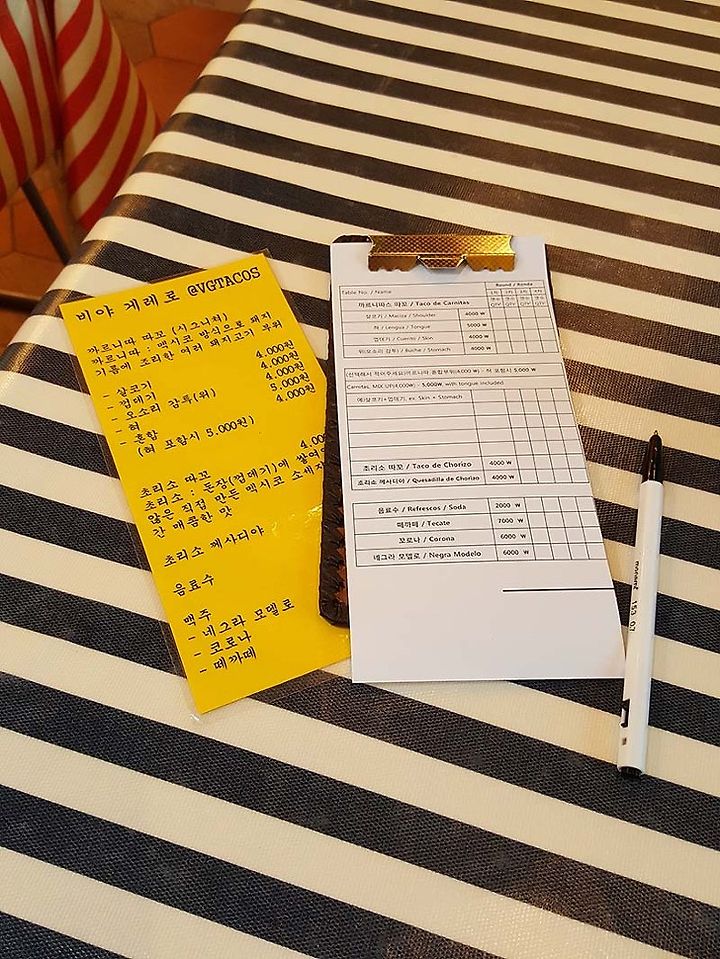 비야 게레로 @VGTACOS
까르니따 따꼬 (시그니처)
까르니따 : 멕시코 방식으로 돼지
기름에 조리한 여러 돼지고기 부위
- 살코기 4,000원
- 껍데기 4,000원
- 오소리 감투(위) 4,000원
- 혀 5,000원
- 혼합 4,000원
(혀 포함시 5,000원)
초리소 따꼬
초리소 : 돈장(껍데기)에 쌓여
않은 직접 만든 멕시코 소세지
간 매콤한 맛
초리소 께사디야
음료수
맥주
- 네그라 모델로
- 코로나
- 떼까떼
Table No. / Name Round / Ronda
까르니따스 따꼬 / Taco de Carnitas
살코기 / Maciza / Shoulder 4000 ₩
혀 / Lengua / Tongue 5000 ₩
껍데기 / Cuerito / Skin 4000 ₩
위(오소리 감투) / Buche / Stomach 4000 ₩
(선택해서 적어주세요)까르니따 혼합부위(4,000 ₩) - 혀 포함시 5,000 ₩
Carnitas, MIX UP(4,000₩) - 5,000₩, with tongue included
예)살코기+껍데기, ex. Skin + Stomach
초리소 따꼬 / Taco de Chorizo 4000 ₩
초리소 께사디야 / Quesadilla de Chorizo 4000 ₩
음료수 / Refrescos / Soda 2000 ₩
떼까떼 / Tecate 7000 ₩
꼬로나 / Corona 6000 ₩
네그라 모델로 / Negra Modelo 6000 ₩
monami 153 0.7